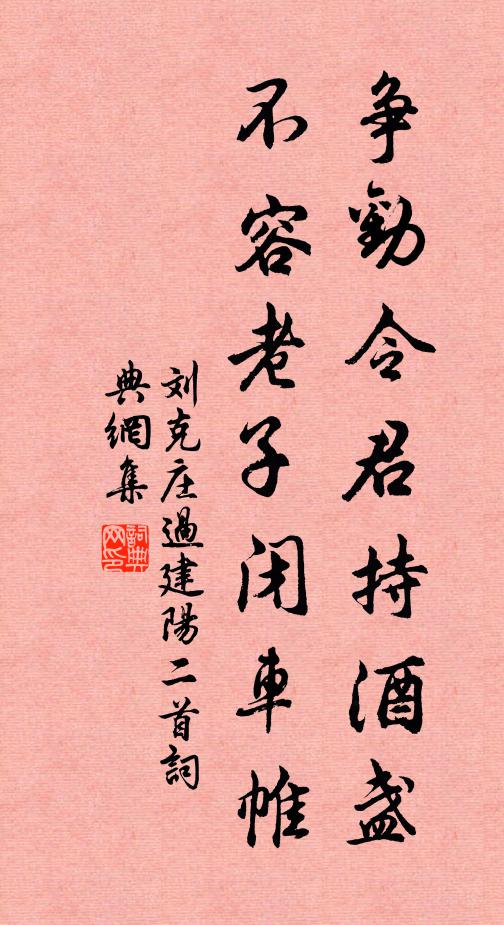 争勸令君持酒盏
不容老子闭車帷
刘克庄過建陽二首詞
典網集
詞典
网印